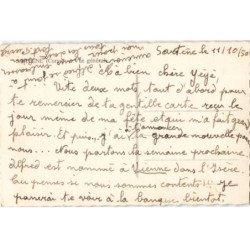 Sartène le 11/10/50
SARTENE (Corse) - Vue générale
Ma bien chère Yéyé,
Vite deux mots tout d'abord pour
te remercier de ta gentille carte reçue le
jour même de ma fête et qui m'a fait gros
plaisir. Et puis, j'ai à t'annoncer la grande nouvelle pour
nous... Nous partons la semaine prochaine
Alfred est nommé à Vienne dans l'Isère.
Tu penses si nous sommes contents !!! Je
passerai te voir à la banque bientôt.